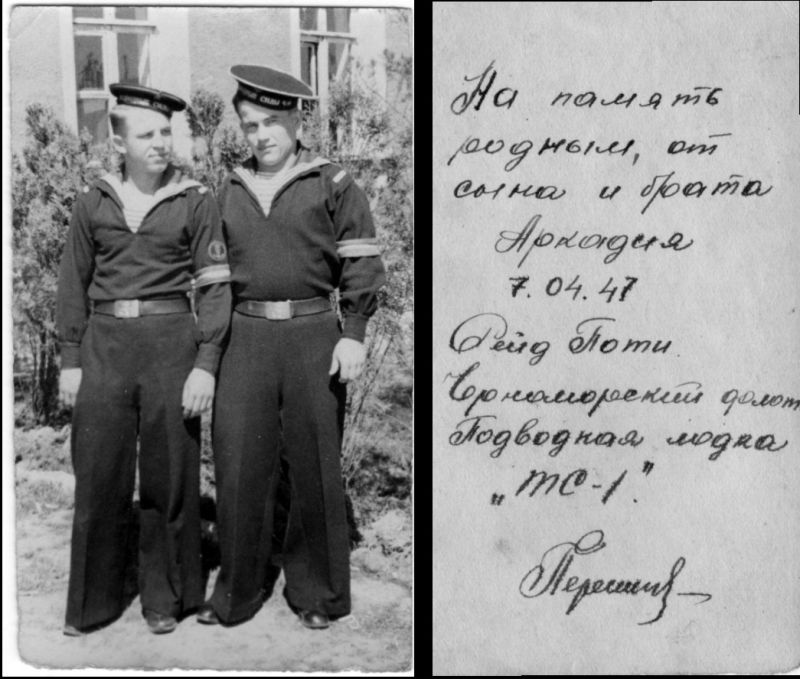 СИЛЫ
На память
родным, от
сына и брата
Аркадия
7.04.47
Рейд Поти
Черноморский флот
Подводная лодка
„ТС-1".